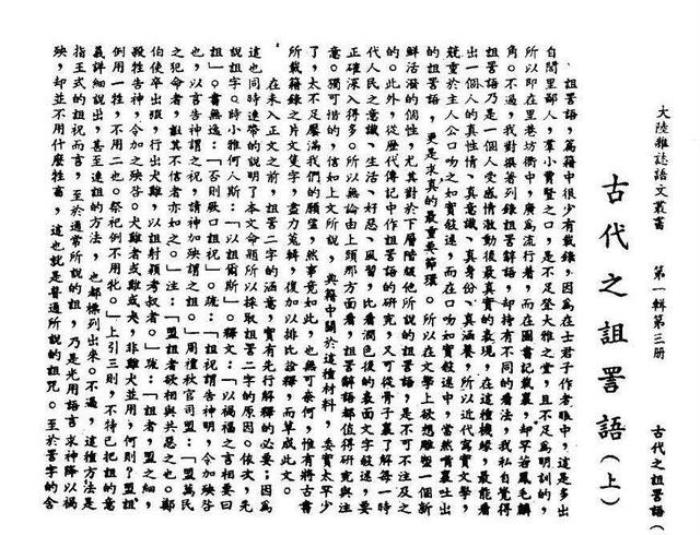 大陸雜誌語文叢書　第一輯第三册　古代之詛詈語(
古代之詛詈語(上)
詛詈語,篇籍中很少有載錄,因爲在士君子作者眼中,這是多出
自閭里鄙人,羣小賈豎之口,是不足登大雅之堂,且不足爲明訓的,
所以即在里巷坊衢中,廣爲流行着,而在圖書記載裏,却罕若鳳毛麟
角。不過,我對撰著列錄詛詈辭語,却持有不同的看法,我私自覺得
詛詈語乃是一個人受感情激動後最真實的表現,在這種機緣,最能看
出一個人的真性情、真意識、真身份、真涵養,所以近代寫實文學,
競重於主人公口吻之如實敍述,而在口吻如實敍述中,當然脣裏吐出
的詛詈語,更是求真的最重要節環。所以在文學上欲想雕塑一個新
鮮活潑的個性,尤其對於下層階級他所說的詛詈語,是不可不注及之
的。此外,從歷代傳記中作詛詈語的研究,又可從骨子裏了解每一時
代人民之意識、生活、好惡、風習,比看潤色後的表面文字敍述,要
正確深入得多。所以無論由上頭那方面看,詛詈辭語都值得研究與注
意。獨可惜的,信如上文所說,典籍中關於這種材料,委實太罕少
了,太不足饜滿我們的願望,然事竟如此,也無可奈何,惟有將古書
所載籍錄之片文隻字,盡力蒐輯,復加以排比詮釋,而草成此文。
在未入正文之前,詛詈二字的涵意,實有先行解釋的必要;因爲
這也同時連帶的說明了本文命題所以採取詛詈二字的原因。依次,先
說詛字。詩小雅何人斯:「以詛爾斯」。釋文:「以禍福之言相要曰
詛」。書無逸:「否則厥口詛祝」。疏:「詛祝謂告神明,令加殃咎
也,以言告神謂之祝,請神加殃謂之詛。」周禮秋官司盟:「盟萬民
之犯命者,詛其不信者亦如之。」注:「盟詛者欲相與共惡之也。鄭
伯使卒出豭,行出犬雞,以詛射潁考叔者。」疏:「詛者,盟之細,
殺牲告神,令加之殃咎。犬雞者或雞或犬,非雞犬並用,何則?盟詛
例用一牲,不用二也。祭祀例不用牝。」上引三則,不特已把詛的意
義詳細說出,甚至連詛的方法,也都標列出來。不過,這種方法是
指正式的詛祝而言,至於通常所說的詛,乃是光用語言求神降以禍
殃,却並不用什麼牲畜,這也就是普通所說的詛咒。至於詈字的含